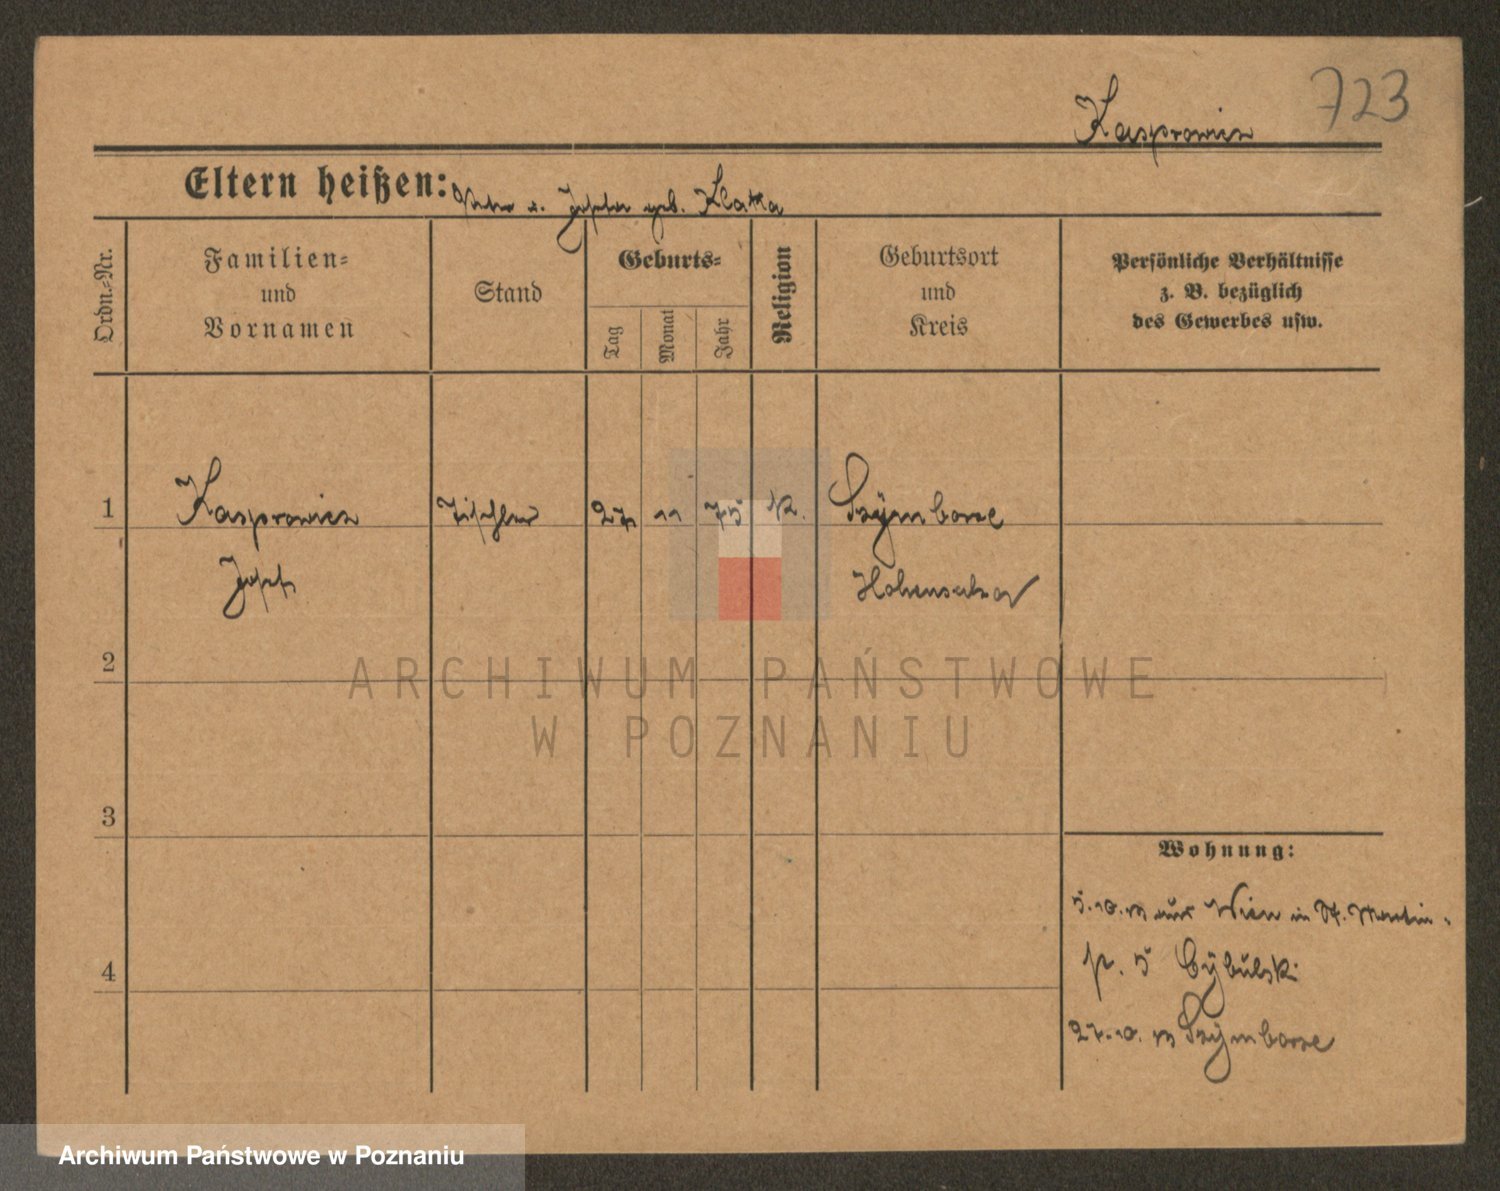 723
Kasprowicz
Eltern heißen: Peter u. Josefa geb. Klatka
Ordn.-Nr.
Familien-
und
Vornamen
Stand
Geburts-
Tag
Monat
Jahr
Religion
Geburtsort
und
Kreis
Persönliche Verhältnisse
z. B. bezüglich
des Gewerbes usw.
1
Kasprowicz
Josef
Tischler
27
11
75
k.
Szÿmborze
Hohensalza
2
3
4
Wohnung:
5.10. aus Wien in St. Martin-
p. 5 Cÿbulski
27.10. Szÿmborze
ARCHIWUM PAŃSTWOWE
W POZNANIU
Archiwum Państwowe w Poznaniu